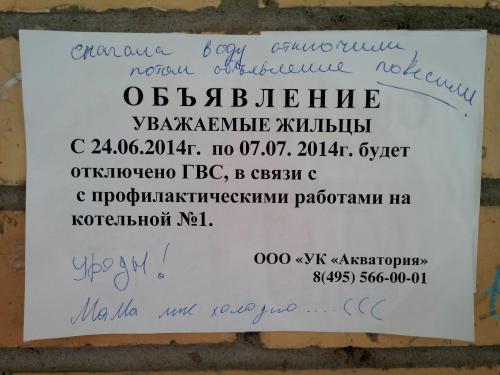 сначала воду отключили,
потом объявление повесили!
ОБЪЯВЛЕНИЕ
УВАЖАЕМЫЕ ЖИЛЬЦЫ
С 24.06.2014г. по 07.07. 2014г. будет
отключено ГВС, в связи с
с профилактическими работами на
котельной №1.
ООО «УК «Акватория»
8(495) 566-00-01
уроды!
Мама мне холодно....(((